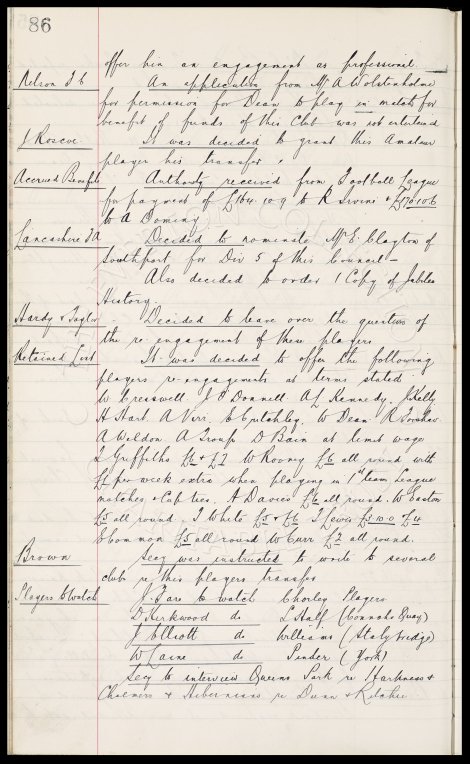 86
offer him an engagement as professional
Nelson F C An application from Mr A Wolstenholme
for permission for Dean to play in match for
benefit of funds of this Club was not entertained
J Roscoe It was decided to grant this Amateur
player his transfer.
Accrued Benefit Authority received from Football League
for payment of £164.10.9 to R Irvine & £170.10.6
to A Dominy
Lancashire F A Decided to nominate Mr E Clayton of
Southport for Div 5 of this Council
Also decided to order 1 Copy of Jubilee
History.
Hardy & Taylor Decided to leave over the question of
the re-engagement of these players
Retained List It was decided to offer the following
players re-engagements at terms stated
W Cresswell J O'Donnell A L Kennedy. J Kelly
H Hart A Virr. E Critchley. W Dean R Forshaw
A Weldon A Troup D Bain at limit wage
T Griffiths £6 & £7 W Rooney £6 all round with
£1 per week extra when playing in 1st team League
matches & Cup ties. A Davies £6 all round. W Easton
£5 all round. T White £5 & £6 T Lewis £3.10.0 & £4
E Common £5 all round W Curr £7 all round.
Brown Secy was instructed to write to several
clubs re this players transfer
Players to Watch J Fare to watch Chorley Players
D Kirkwood do S Hall (Connahs Quay)
J Elliott do Williams (Stalybridge)
W Laine do Pinder (York)
Secy to interview Queens Park re Harkness &
Chalmers & Hibernians re Dunn &